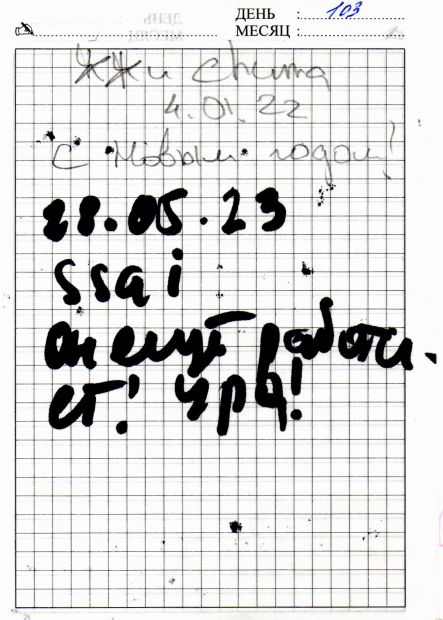 ДЕНЬ : 103
МЕСЯЦ :
ЖЖи chuma
4.01.22
С Новым годом!
28.05.23
ssai
он ещё работа-
ет! Ура!